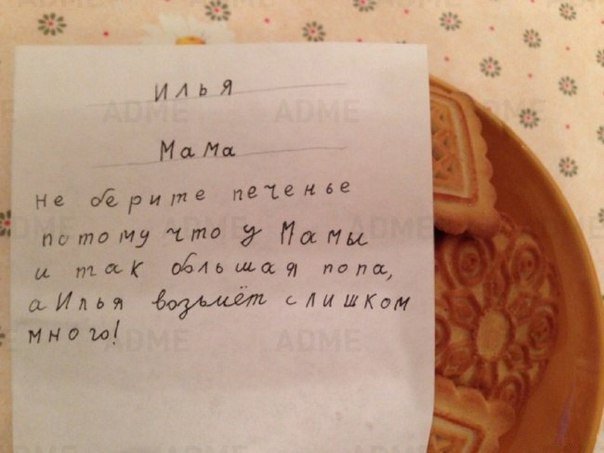 Илья
Мама
не берите печенье
потому что у Мамы
и так большая попа,
а Илья возьмёт слишком
много!
ADME
ADME
ADME
ADME
ADME
ADME